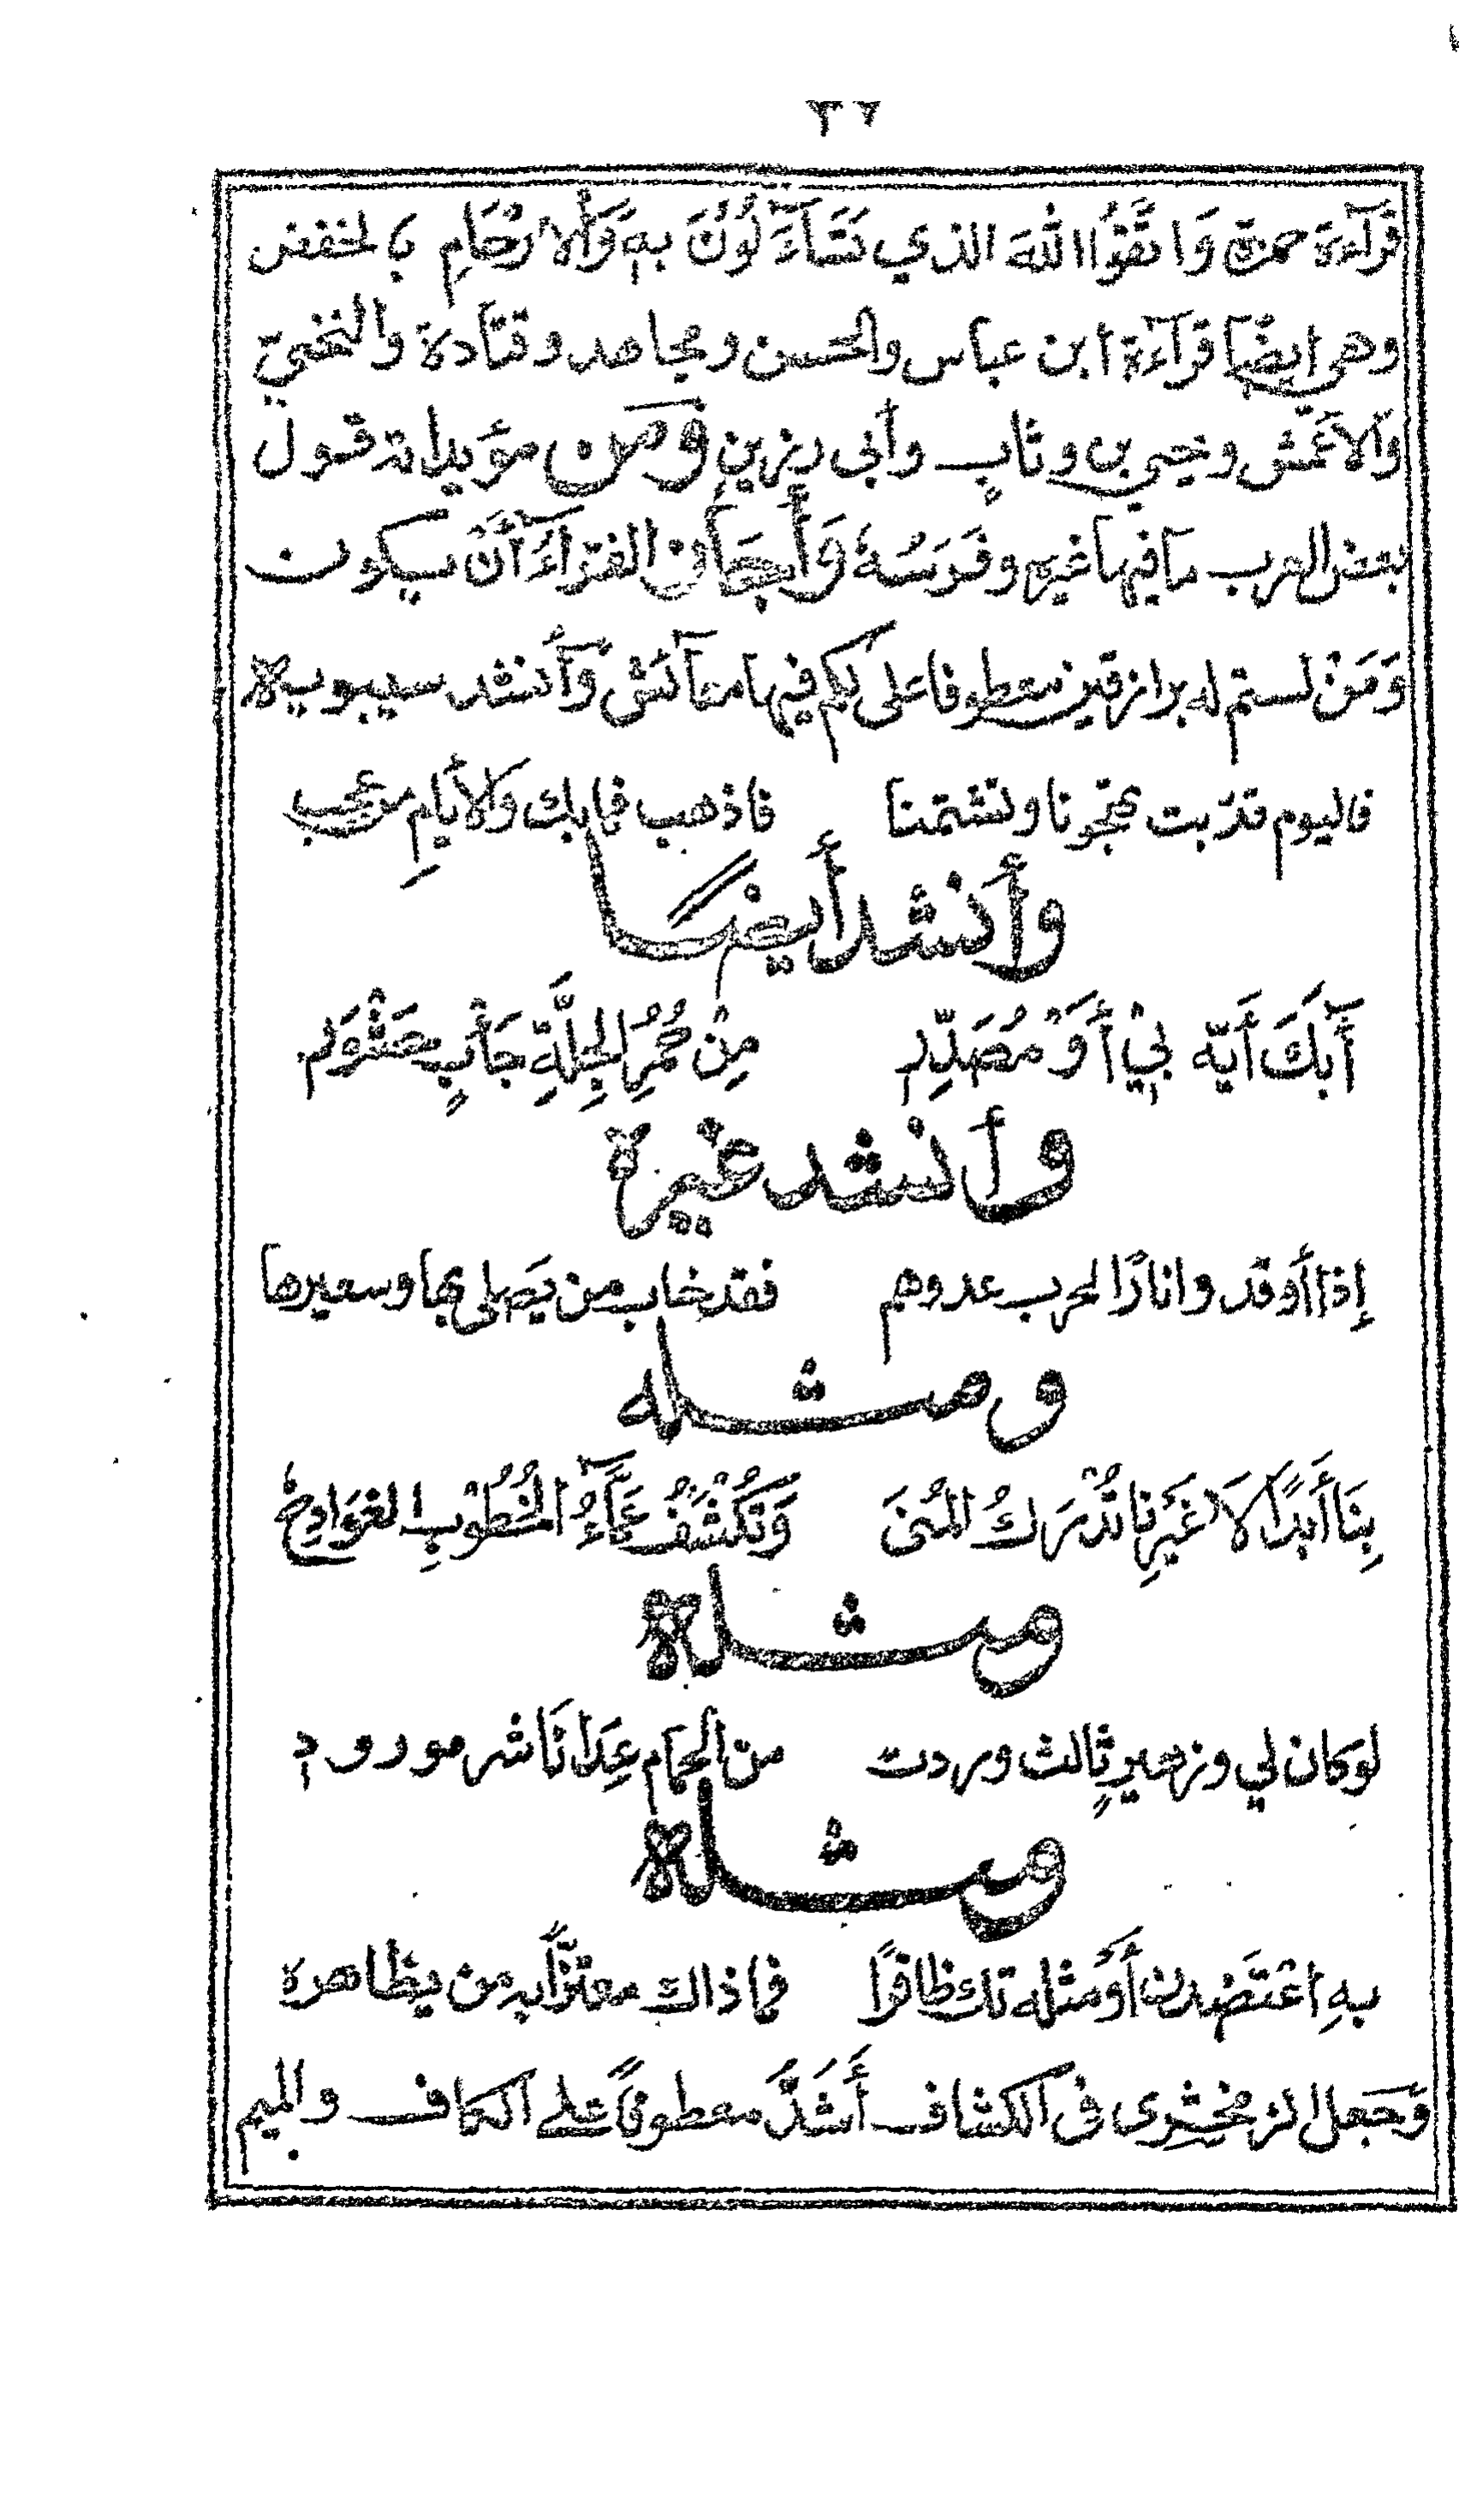 ٣٦
قرآءة حمزة وَاتَّقُوْا اللّٰهَ الذي تَسَّآءَلُوْنَ بهِ وَالأرْحَامِ بالخفض
وهي ايضًا قرآءة ابن عباس والحسن ومجاهد وقتادة والنخعي
والأعمش ويحيى بن وثابٍ وأبي رزين ومن مؤيداته قول
بعض العرب ما فيها غيره وفَرَسُهُ وأجاز الفرّاءُ أنْ يكون
وَمَنْ لستم له برازقين معطوفا على لكم فيها معآئش وأنشد سيبويه
فاليوم قدّبت تهجونا وتشتمنا فاذهب فمابك والأيامِ من عجب
وأنشد أيضًا
آبكَ أَيّه بِيْ أَوْ مُصَدِّرِ مِنْ حُمُرِ الجِلَّةِ جَأْبٍ حَشْوَرِ
وأنشد غيره
إذا أوقدوا نارًا لحرب عدوهم فقد خاب من يَصلى بها وسعيرها
ومثله
بِنَا أَبدًا لاَ غَيْرِنا تُدْرَكُ المُنَى وَتُكْشَفُ غَمَّآءُ الخُطُوْبِ الفَوَادِحِ
ومثله
لو كان لي وزهيرٍ ثالث وردت من الحِمَام عِدَانَا شر مورودِ
ومثله
بهِ اعْتَضِدن أَوْ مثله تك ظافرًا فما ذاك معتزًّا به من يظاهره
وَجَعل الزمخشري في الكشاف أَشَدَّ معطوفًا على الكاف والميم